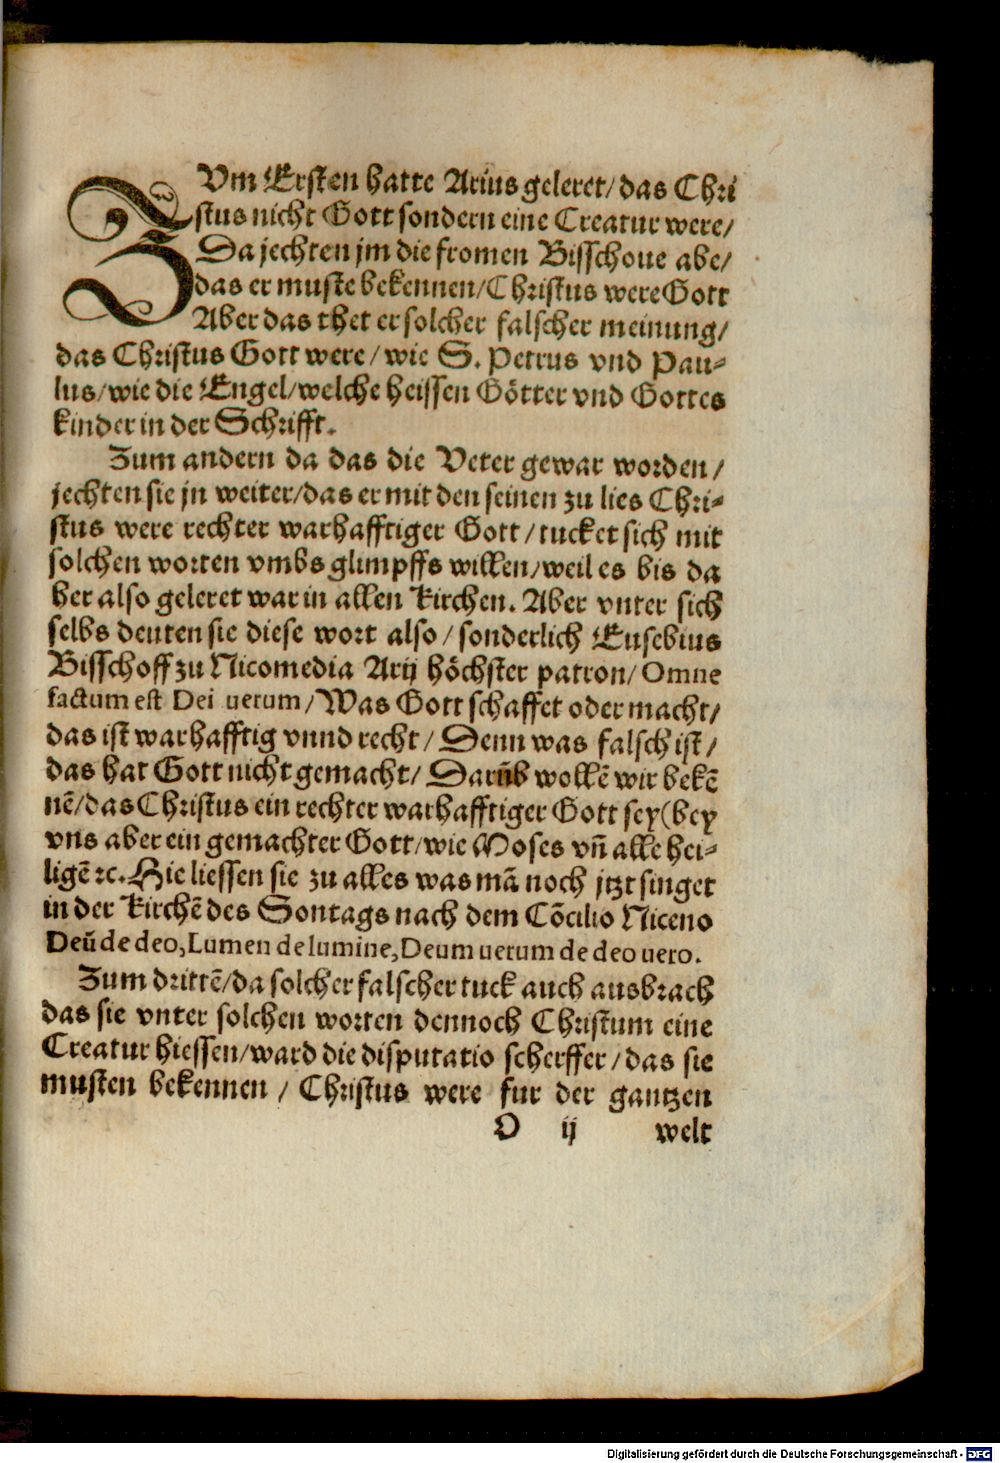 ZVm Ersten hatte Arius geleret/ das Chri
stus nicht Gott sondern eine Creatur were/
Da jechten jm die fromen Bisschoue abe/
das er muste bekennen/ Christus were Gott
Aber das thet er solcher falscher meinung/
das Christus Gott were/ wie S. Petrus vnd Pau-
lus/ wie die Engel/ welche heissen Götter vnd Gottes
kinder in der Schrifft.
Zum andern da das die Veter gewar worden/
jechten sie jn weiter/ das er mit den seinen zu lies Chri-
stus were rechter warhafftiger Gott/ tucket sich mit
solchen worten vmbs glimpffs willen/ weil es bis da
her also geleret war in allen Kirchen. Aber vnter sich
selbs deuten sie diese wort also/ sonderlich Eusebius
Bisschoff zu Nicomedia Arij höchster patron/ Omne
factum est Dei uerum/ Was Gott schaffet oder macht/
das ist warhafftig vnnd recht/ Denn was falsch ist/
das hat Gott nicht gemacht/ Darūb wollē wir bekē
nē/ das Christus ein rechter warhafftiger Gott sey (bey
vns aber ein gemachter Gott/ wie Moses vñ alle hei-
ligē ꝛc. Hie liessen sie zu alles was mā noch jtzt singet
in der Kirchē des Sontags nach dem Cōcilio Niceno
Deū de deo, Lumen de lumine, Deum uerum de deo uero.
Zum drittē/ da solcher falscher tuck auch ausbrach
das sie vnter solchen worten dennoch Christum eine
Creatur hiessen/ ward die disputatio scherffer/ das sie
musten bekennen/ Christus were fur der gantzen
O ij welt
Digitalisierung gefördert durch die Deutsche Forschungsgemeinschaft - DFG